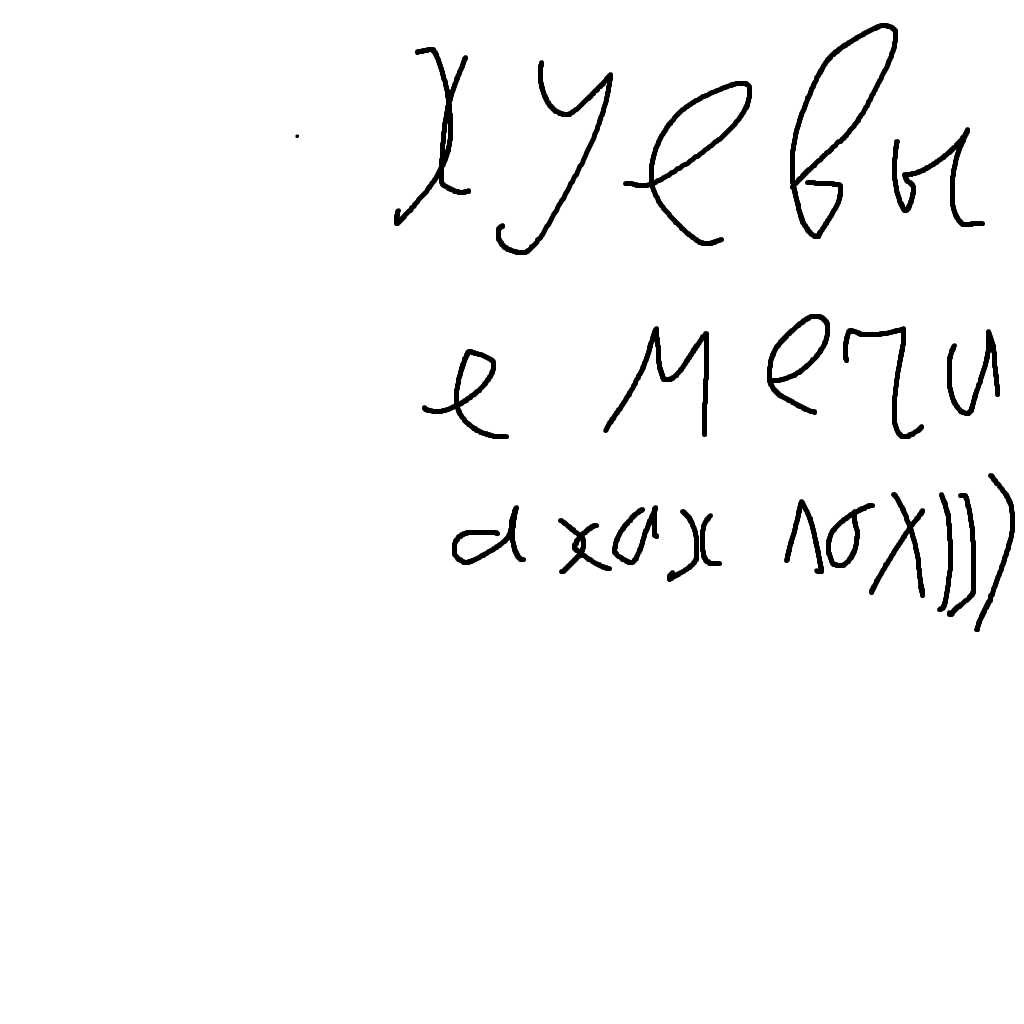 хуевы
е мечи
ахах лох)))